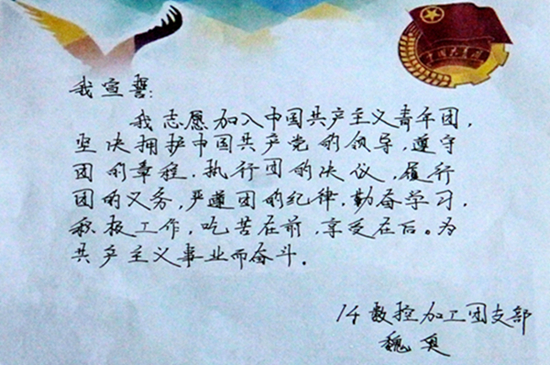 我宣誓：
我志愿加入中国共产主义青年团，
坚决拥护中国共产党的领导，遵守
团的章程，执行团的决议，履行
团的义务，严遵团的纪律，勤奋学习，
积极工作，吃苦在前，享受在后。为
共产主义事业而奋斗。
14数控加工团支部
魏奥